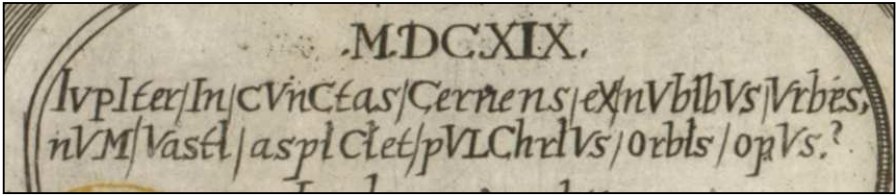 .M.DC.XIX.
IvpIter/In/CVnCtas/Cernens/eX/nVbIbVs/Vrbes,
nVM/VastI/aspICIet/pVLChrIVs/orbIs/opVs.?